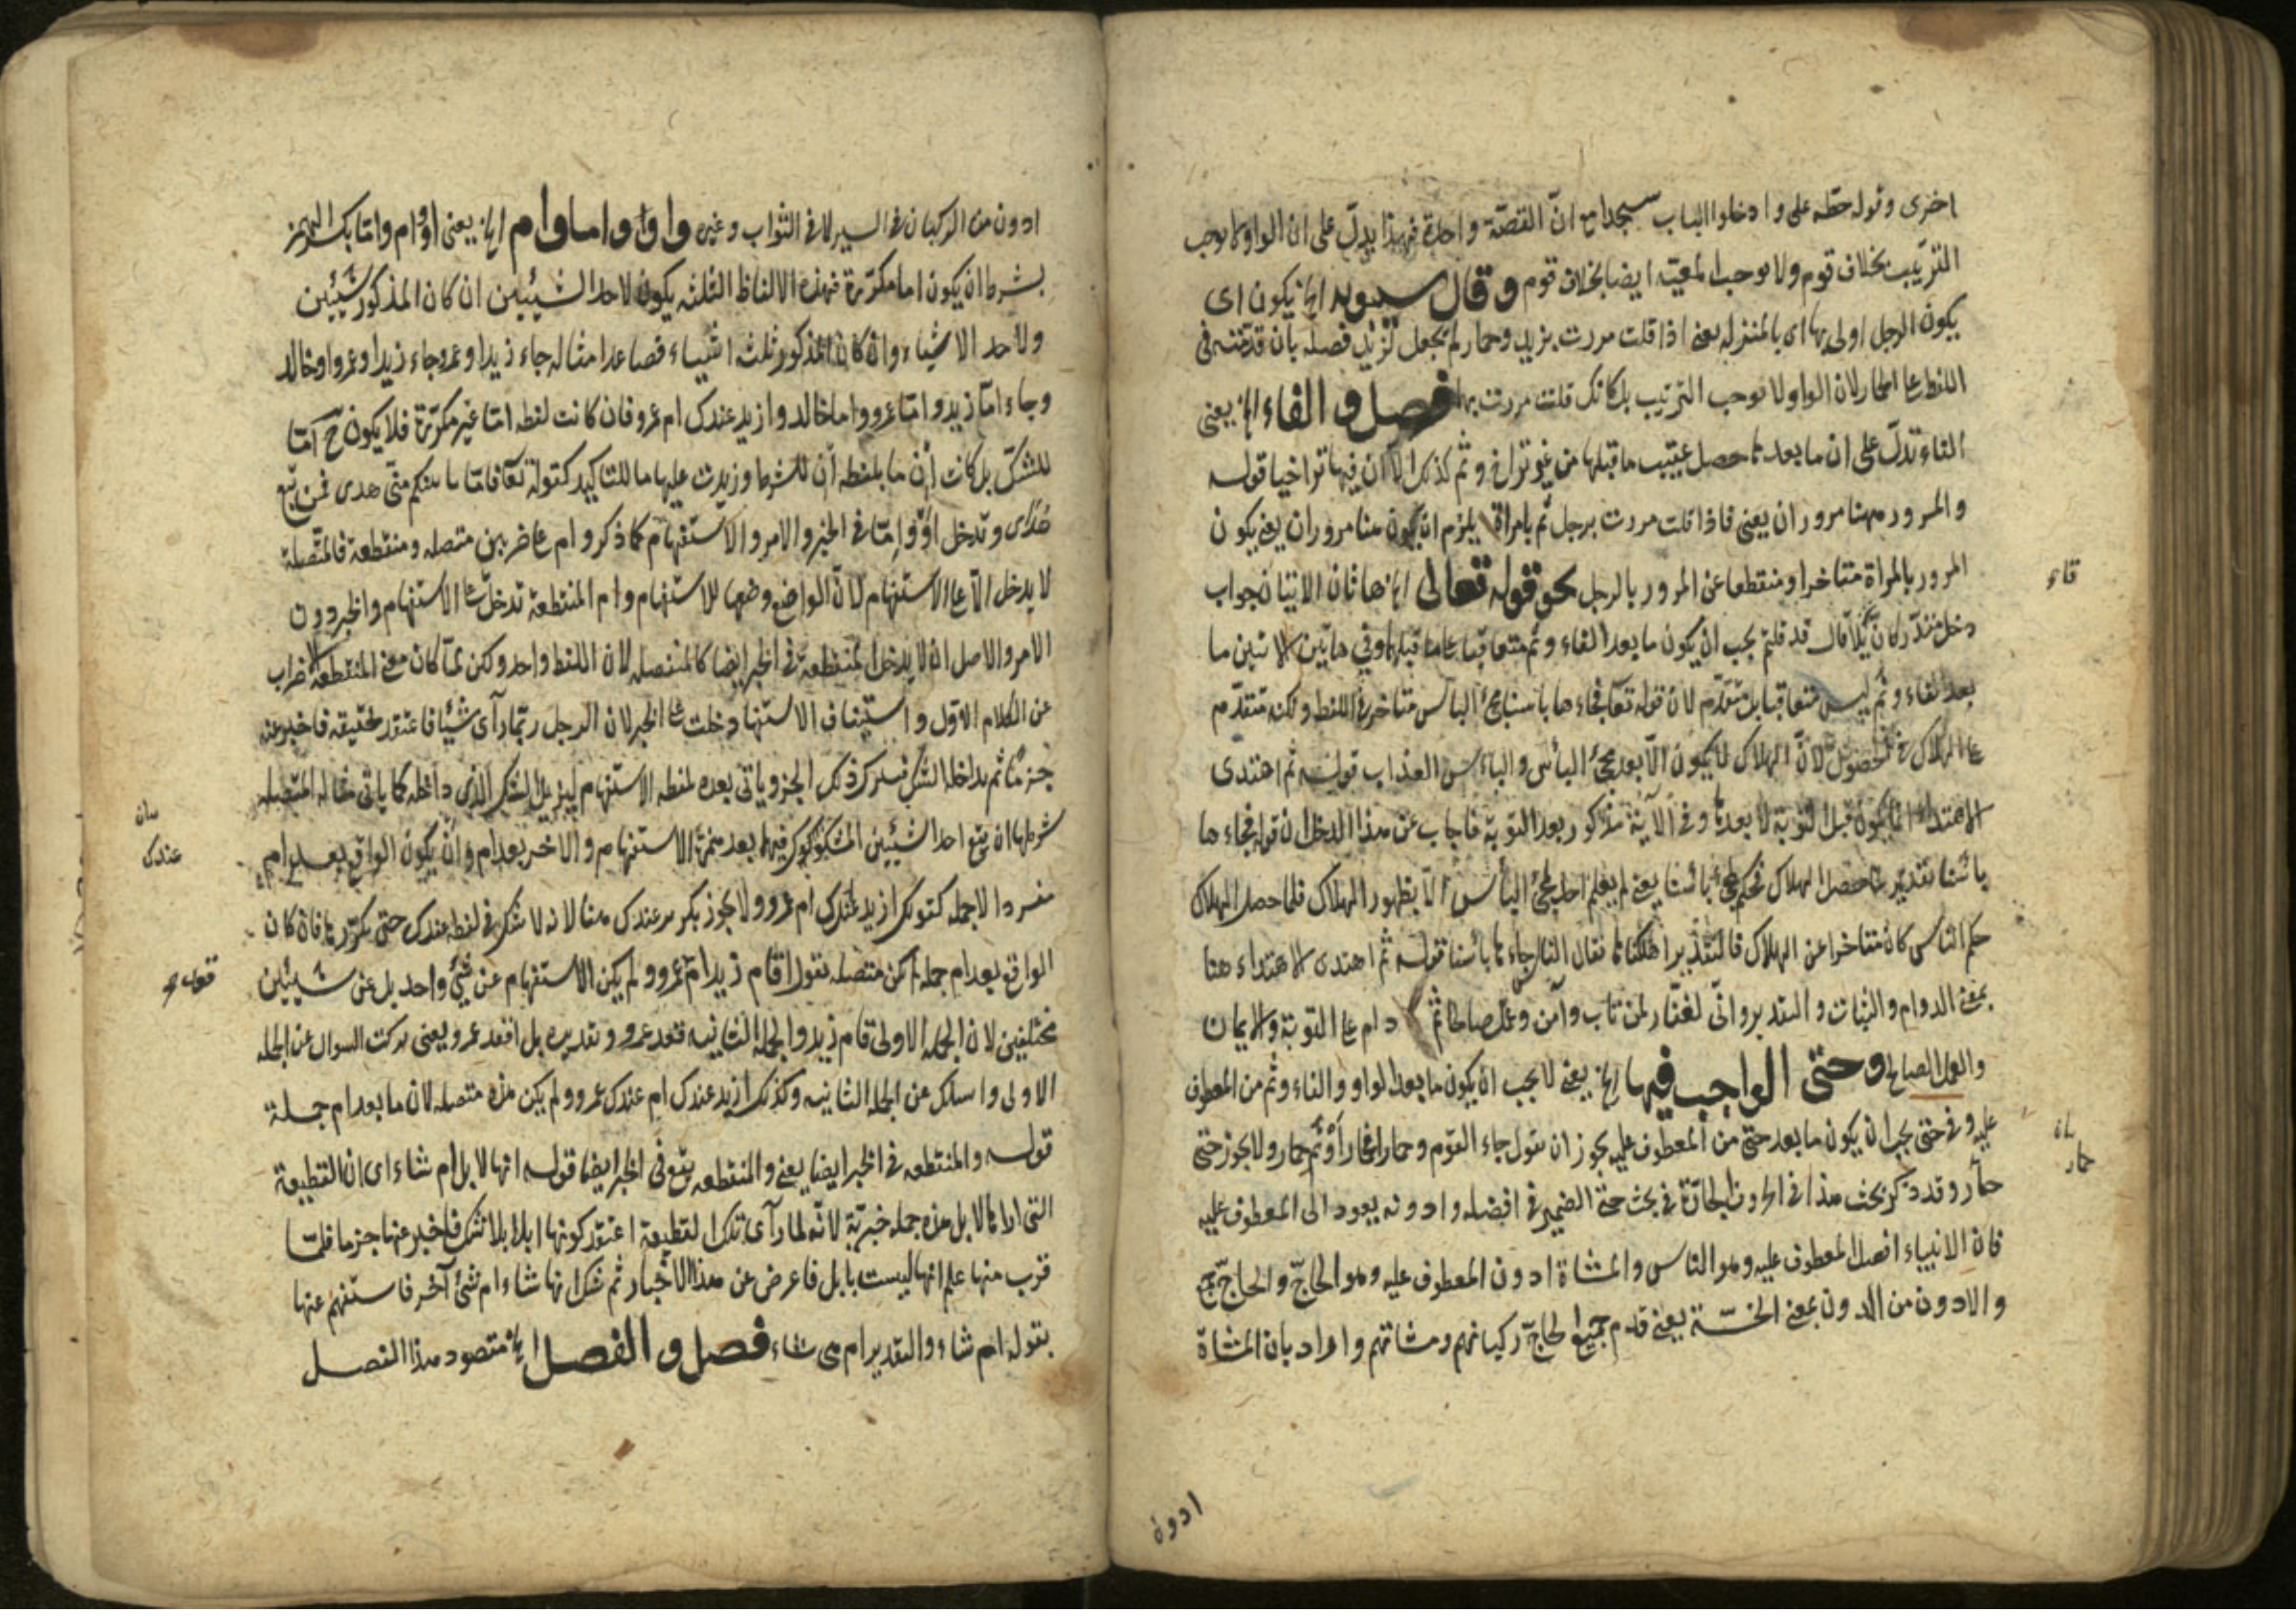 اخرى وقوله حطة على وادخلوا الباب سجدا مع انّ القصّة واحدة فهذا يدلّ على ان الواو لا يوجب
الترتيب بخلاف قوم ولا يوجب المعيّة ايضا بخلاف قوم وقال سيبويه الخ يكون اى
يكون الرجل اولى بها اى بالمنزلة يعنى اذا قلت مررت بزيد وحمار لم تجعل لزيد فضلة بان قدمته فى
اللفظ على الحمار لان الواو لا يوجب الترتيب بل كانك قلت مررت بهما فصل والفاء الخ يعنى
الفاء تدلّ على ان ما بعدها حصل عقيب ما قبلها من غير تراخ وثم كذلك الا ان فيها تراخيا قوله
والمرور ههنا مروران يعنى فاذا قلت مررت برجل ثم بامراة يلزم ان يكون هنا مروران يعنى يكون
المرور بالمراة متاخرا ومنقطعا عن المرور بالرجل نحو قوله تعالى الخ هاتان الايتان جواب
دخل مقدّر كانّ قائلا قال قد قلتم يجب ان يكون ما بعد الفاء وثم متعاقبا على ما قبلها وفى هاتين الايتين ما
بعد الفاء وثم ليس متعاقبا بل متقدّم لان قوله تعا فجاءها باسنا مجئ الباس متاخر فى اللفظ ولكنه متقدّم
على الهلاك فى الحصول لانّ الهلاك لا يكون الّا بعد مجئ الباس والباس العذاب قوله ثم اهتدى
الاهتداء انما يكون قبل التوبة لا بعدها وفى الآية مذكور بعد التوبة فاجاب عن هذا الدخل ان قوله فجاءها
بائسنا تقديره لما حصل الهلاك فحكم بمجئ بائسنا يعنى لم يعلم احد بمجئ البأس الّا بظهور الهلاك فلما حصل الهلاك
حكم الناس كان متاخرا عن الهلاك فالتقدير اهلكناها فقال الناس جاءها بائسنا قوله ثم اهتدى الاهتداء هنا
بمعنى الدوام والثبات والتقدير وانّى لغفّار لمن تاب وآمن وعمل صالحا ثم دام على التوبة والايمان
والعمل الصالح وحتى الواجب فيها الخ يعنى لا يجب ان يكون ما بعد الواو والفاء وثم من المعطوف
عليه وفى حتى يجب ان يكون ما بعد حتى من المعطوف عليه يجوز ان تقول جاء القوم وحمار او فحمار او ثم حمار ولا يجوز حتى
حمار وقد ذكر بحث هذا فى الحروف الجارّة فى بحث حتى الضمير فى افضله وادونه يعود الى المعطوف عليه
فان الانبياء افضل المعطوف عليه وهو الناس والمشاة ادون المعطوف عليه وهو الحاجّ والحاجّ
والادون من الدون بمعنى الخسّة يعنى قدم جميع الحاجّ ركبانهم ومشاتهم واراد بان المشاة
قاء
حمار
ادون
ادون من الركبان فى السير لا فى الثواب وغيره واو واما وام الخ يعنى او وام واما بكسر الهمز
بشرط ان يكون اما مكررة فهذه الالفاظ الثلثة يكون لاحد الشيئين ان كان المذكور شيئين
ولاحد الاشياء وان كان المذكور ثلثة اشياء فصاعدا مثاله جاء زيد او عمرو جاء زيد او عمرو او خالد
وجاء امّا زيد وامّا عمرو واما خالد وازيد عندك ام عمرو فان كانت لفظه امّا غير مكرّرة فلا يكون ح امّا
للشكّ بل كانت إن ما بلفظه إن للشرط وزيدت عليها ما للتاكيد كقوله تعا فامّا ياتينكم منّى هدى فمن تبع
هُدًى وتدخل او وامّا فى الخبر والامر والاستفهام كما ذكر وام على ضربين متصله ومنقطعة فالمتّصلة
لا يدخل الّا على الاستفهام لانّ الواضع وضعها للاستفهام وام المنقطعة تدخل على الاستفهام والخبر دون
الامر والاصل ان لا يدخل المنقطعة فى الخبر ايضا كالمتصله لان اللفظ واحد ولكن لمّا كان معنى المنقطعة الاضراب
عن الكلام الاوّل واستيناف الاستفهام دخلت على الخبر لان الرجل ربّما رآى شيئا فاعتقد حقيقة فاخبر عنه
جزمًا ثم يداخله الشك فيترك ذلك الجزم وياتى بعده لفظه الاستفهام ليزيل الشك الذى داخله كما ياتى مثاله المتصله
شرطها ان يقع احد الشيئين المشكوك فيهما بعد همزة الاستفهام والاخر بعد ام وان يكون الواقع بعد ام
مفردا لا جمله كقولك ازيد عندك ام عمرو ولا يجوز بكر عندك هنا لانه لا شك فى لفظه عندك حتى يكرّرها فان كان
الواقع بعد ام جمله لم تكن متصله تقول اقام زيد ام عمرو ولم يكن الاستفهام عن شئ واحد بل عن شيئين
مختلفين لان الجمله الاولى قام زيد والجمله الثانيه قعد عمرو وتقديره بل اقعد عمرو يعنى تركت السوال عن الجمله
الاولى واسئلك عن الجمله الثانيه وكذلك ازيد عندك ام عندك عمرو ولم يكن هذه متصله لان ما بعد ام جملة
قوله والمنقطعه فى الخبر ايضا يعنى والمنقطعه يقع فى الخبر ايضا قوله انها لابل ام شاء اى ان القطيعة
التى اراها لابل هذه جمله خبريّة لانّه لما رآى تلك القطيعة اعتقد كونها ابلا بلا شك فاخبر عنها جزما فلمّا
قرب منها علم انها ليست بابل فاعرض عن هذا الاخبار ثم شك انها شاء ام شئ آخر فاستفهم عنها
بقوله ام شاء والتقدير ام هى شاء فصل والفصل الخ مقصود هذا الفصل
عندك